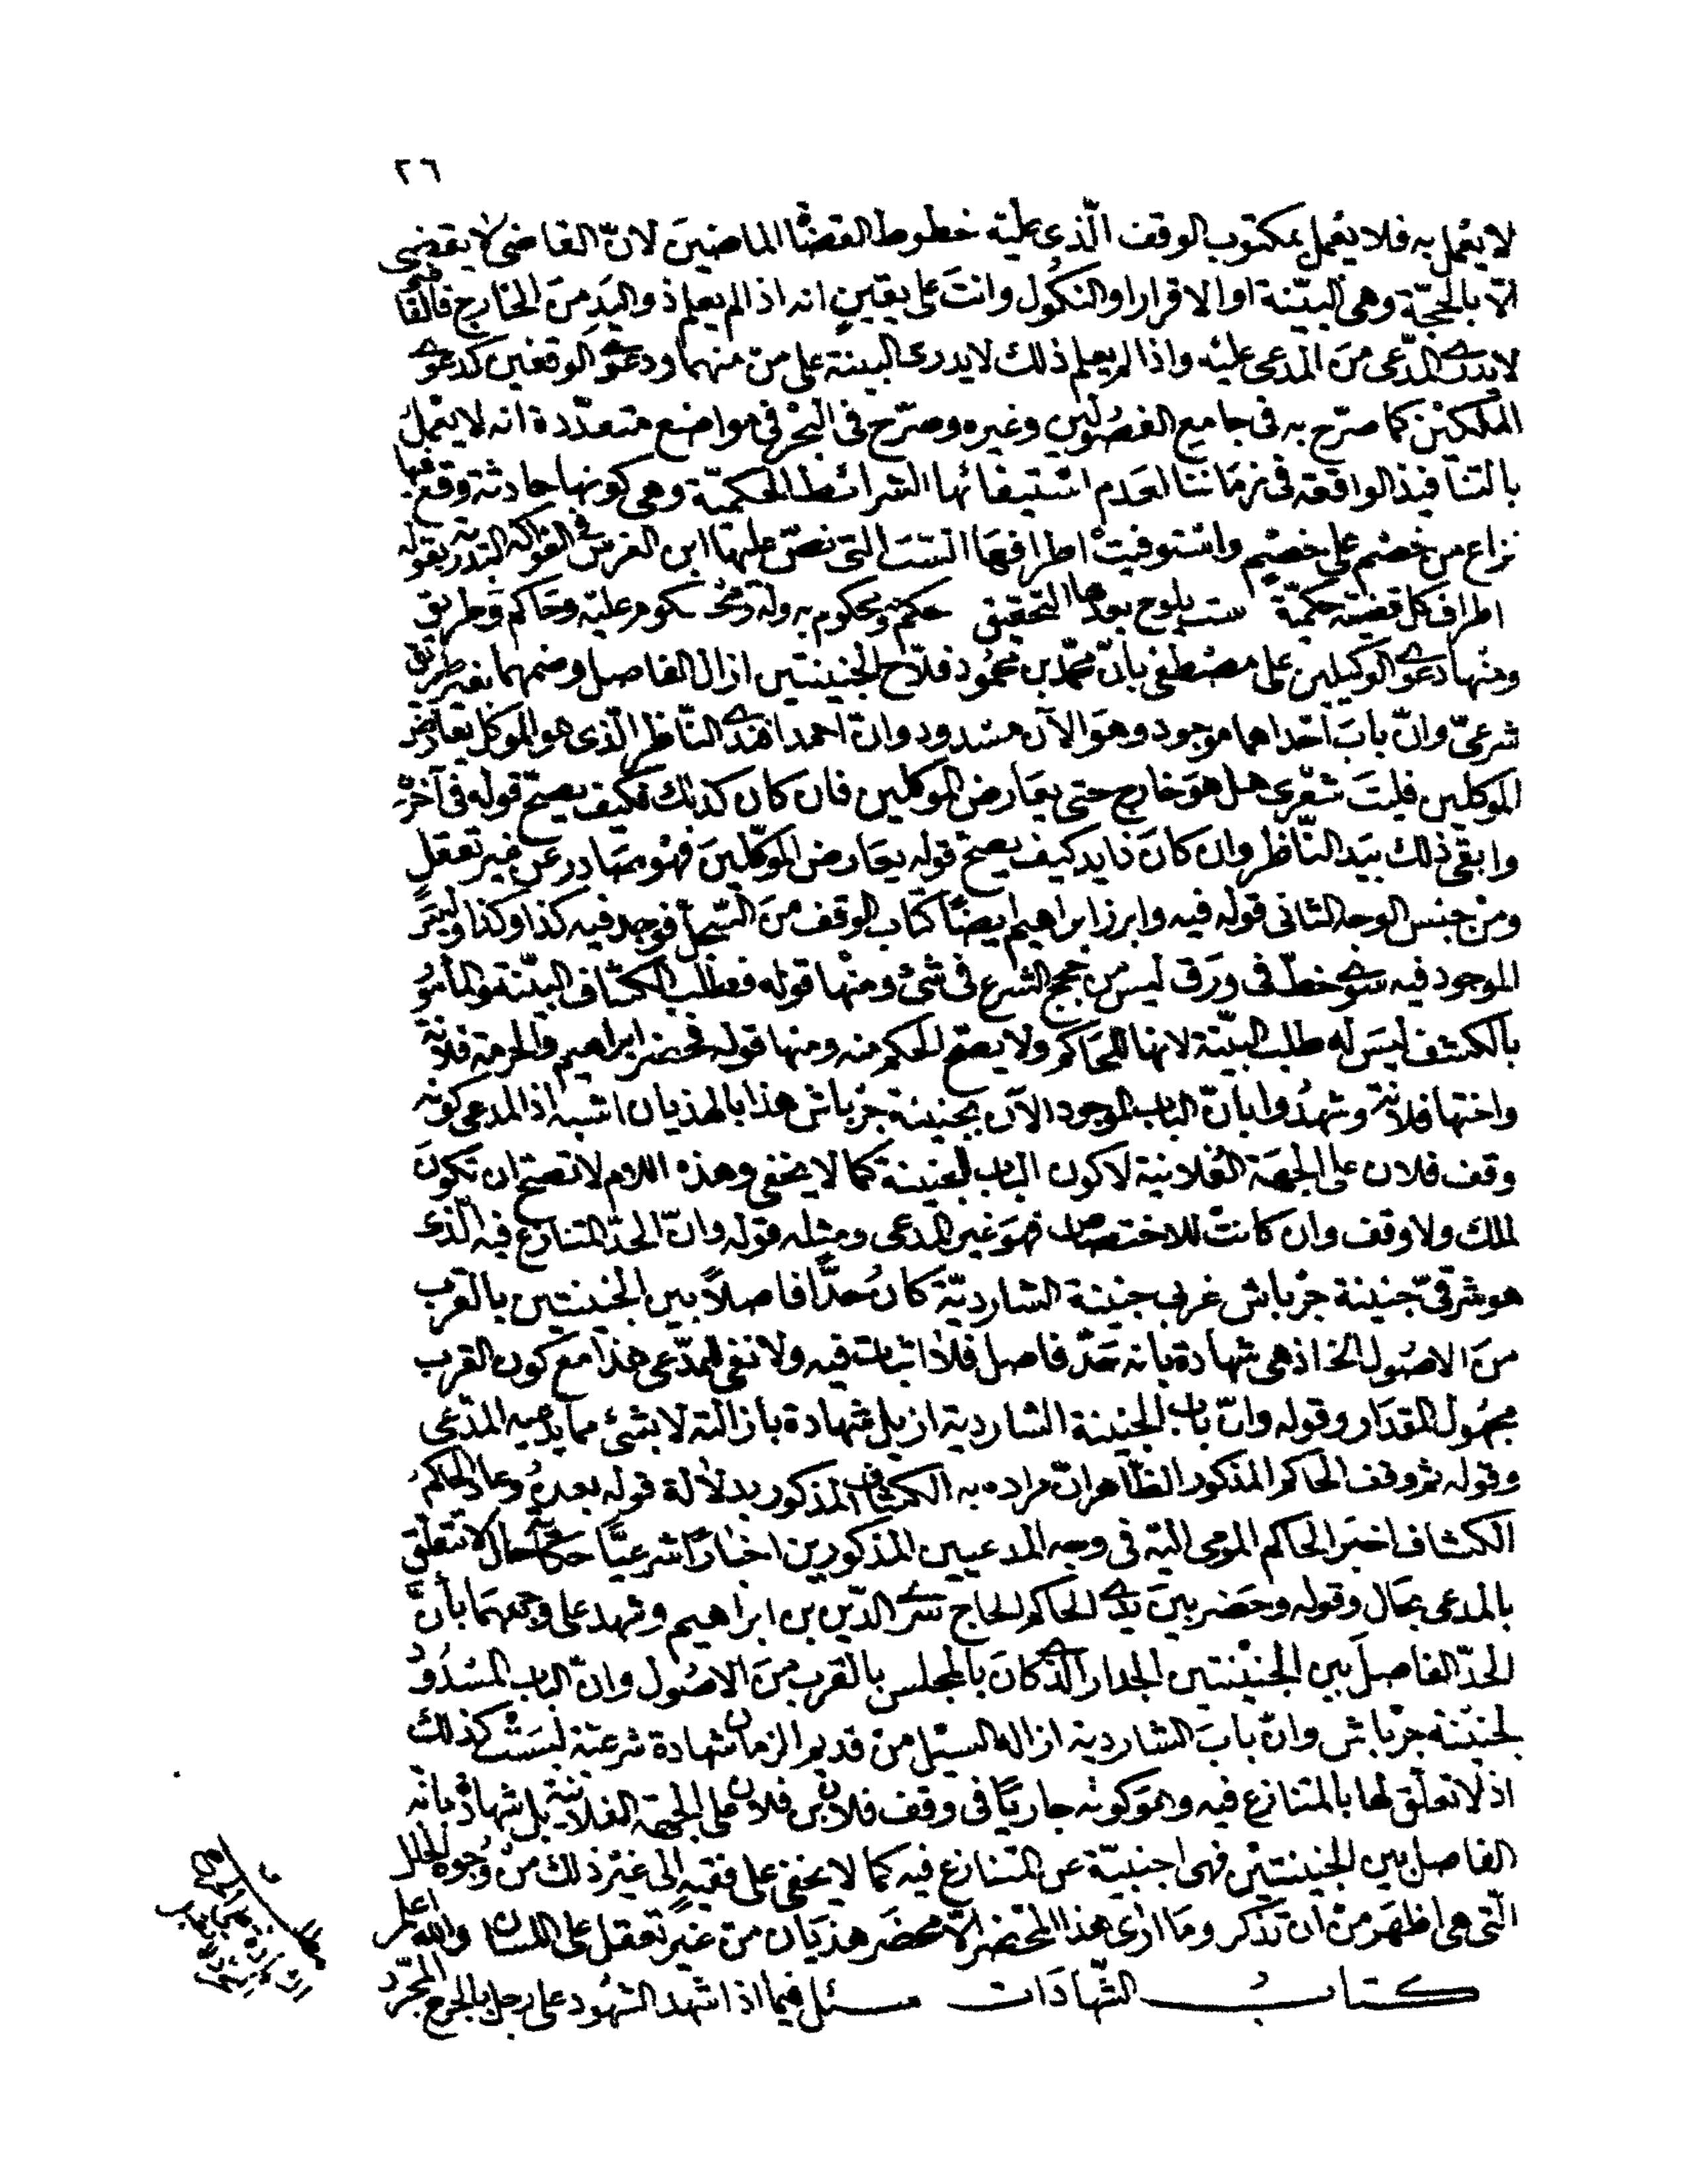 ٢٦
لا يعمل به فلا يعمل بمكتوب الوقف الّذى عليه خطوط القضاة الماضينَ لانّ القاضى لا يقضى
الّا بالحجّة وهى البيّنة او الاقرار او النكول وانتَ على يقينٍ انه اذا لم يعلم ذو اليَدِ مِنَ الخارج فالقاضى
لا يدرى المدّعى مِنَ المدعى عليْه واذا لم يعلم ذلك لا يدرى البينة على من منهما ودعوى الوقفين كدعوى
الملكيْن كما صرّح به فى جامع الفصُوليْن وغيره وصرّح فى البحْر فى مواضع متعدّدة انه لا يعْمل
بالتنافيذ الواقعة فى زمَاننا لعَدم استيفائها الشرائط الحكميّة وهى كونها حادثة وقع فيها
نزاع من خصْم على خصْمٍ واسْتوفيتْ اطرافهَا الستَ التى نصّ عليها ابن الغرس فى الفواكه البدرية بقوله
اطراف كل قضية حكميّة ست يلوح بعدها التحقيق حكم ومحكوم به وله ومحكوم عليْه وحَاكم وطريق
ومنها دعوى الوكيلين على مصْطفى بأنّ محمّد بن محمُود فلّاح الجنينتين ازال الفاصل وضمهما بغير طريق
شرعىّ وانّ بابَ احْداهما موجود وهوَ الآن مسْدود وانّ احمد افندى النّاظر الّذى هو الموكل يعارض
الموكلين فليتَ شعْرى هل هوَ خارج حتى يعَارض الموكلين فان كان كذلك فكيف يصحّ قوله فى آخره
وابقى ذلك بيَد النّاظر وان كانَ ذا يد كيف يصحّ قوله يعَارض الموكّلينَ فهوَ صَادر عن غير تعقل
ومنْ جنس الوجه الثانى قوله فيه وابرز ابراهيم ايضًا كتاب الوقف مِنَ السّجل فوجد فيه كذا وكذا وليْسَ
الموجود فيه سوى خطّ فى ورَق ليسَ من حجج الشرع فى شئ ومنْها قوله فطلب الكشّاف البيّنة والمأمُور
بالكشف ليسَ له طلب البيّنة لانها للحَاكم ولا يصحّ الحكم منه ومنها قوله فحضر ابراهيم والحرمة فلانة
واختها فلانة وشهدُوا بانّ الباب الموجود الآن بجنينة جرْباش هذا بالهذيان اشبه اذ المدعى كونه
وقف فلان على الجهَة الفُلانية لا كون الباب لجنينة كما لا يخفى وهذه اللام لا تصحّ ان تكونَ
لملك ولا وقف وان كانتْ للاختصاص فهوَ غير المدعى ومثله قوله وانّ الحدّ المتنازع فيه الّذى
هو شرقىّ جنينة جرْباش غربى جنينة الشارديّة كانَ حدًّا فاصلاً بين الجنينتين بالقرب
منَ الاصُول الخ اذ هى شهادة بانه حَدّ فاصل فلا اثبات فيه ولا نفى للمدّعى هذا مع كون القرب
مجهُول المقدَار وقوله وانّ باب الجنينة الشاردية ازيل شهادة بازالته لا بشئ مما يدعيه المدّعى
وقوله ثم وقف الحاكم المذكور الظّاهر انّ مراده به الكشاف المذكور بدلالة قوله بعدهُ وعاد الحاكمُ
الكشاف اخبَر الحاكم المومى اليْه فى وجه المدعيين المذكورين اخبارًا شرعيًّا حكمًا حال لا تتعلق
بالمدعى بحَال وقوله وحَضر بينَ يدى الحاكم الحاج شرى الدّين بن ابراهيم وشهد على وجههمَا بأنّ
الحدّ الفاصلَ بين الجنيْنتين الجدار الّذى كانَ بالمجلس بالقرب مِنَ الاصُول وانّ الباب المسْدُود
لجنيْنة جرْباش وانّ بابَ الشاردية ازاله السيْل منْ قديم الزمان شهادة شرعيّة ليسَتْ كذلك
اذ لا تعلّق لها بالمتنازع فيه وهوَ كونه جاريًا فى وقف فلان بن فلان على الجهَة الفلانية بل شهادة بانه
الفاصل بين الجنينتيْن فهى اجنبيّة عن المتنازع فيه كما لا يخفى على فقيه الى غيْر ذلك منْ وُجوه الخلل
الّتى هى اظهَر منْ ان تذكر ومَا ارَى هذا المحْضر الّا محْضَر هذيَان منْ غيْر تعقل على اللسان والله اعلم
كتابُ الشّهادَات سئل فيما اذا شهد الشهُود على رجل بالجرح المجرّد